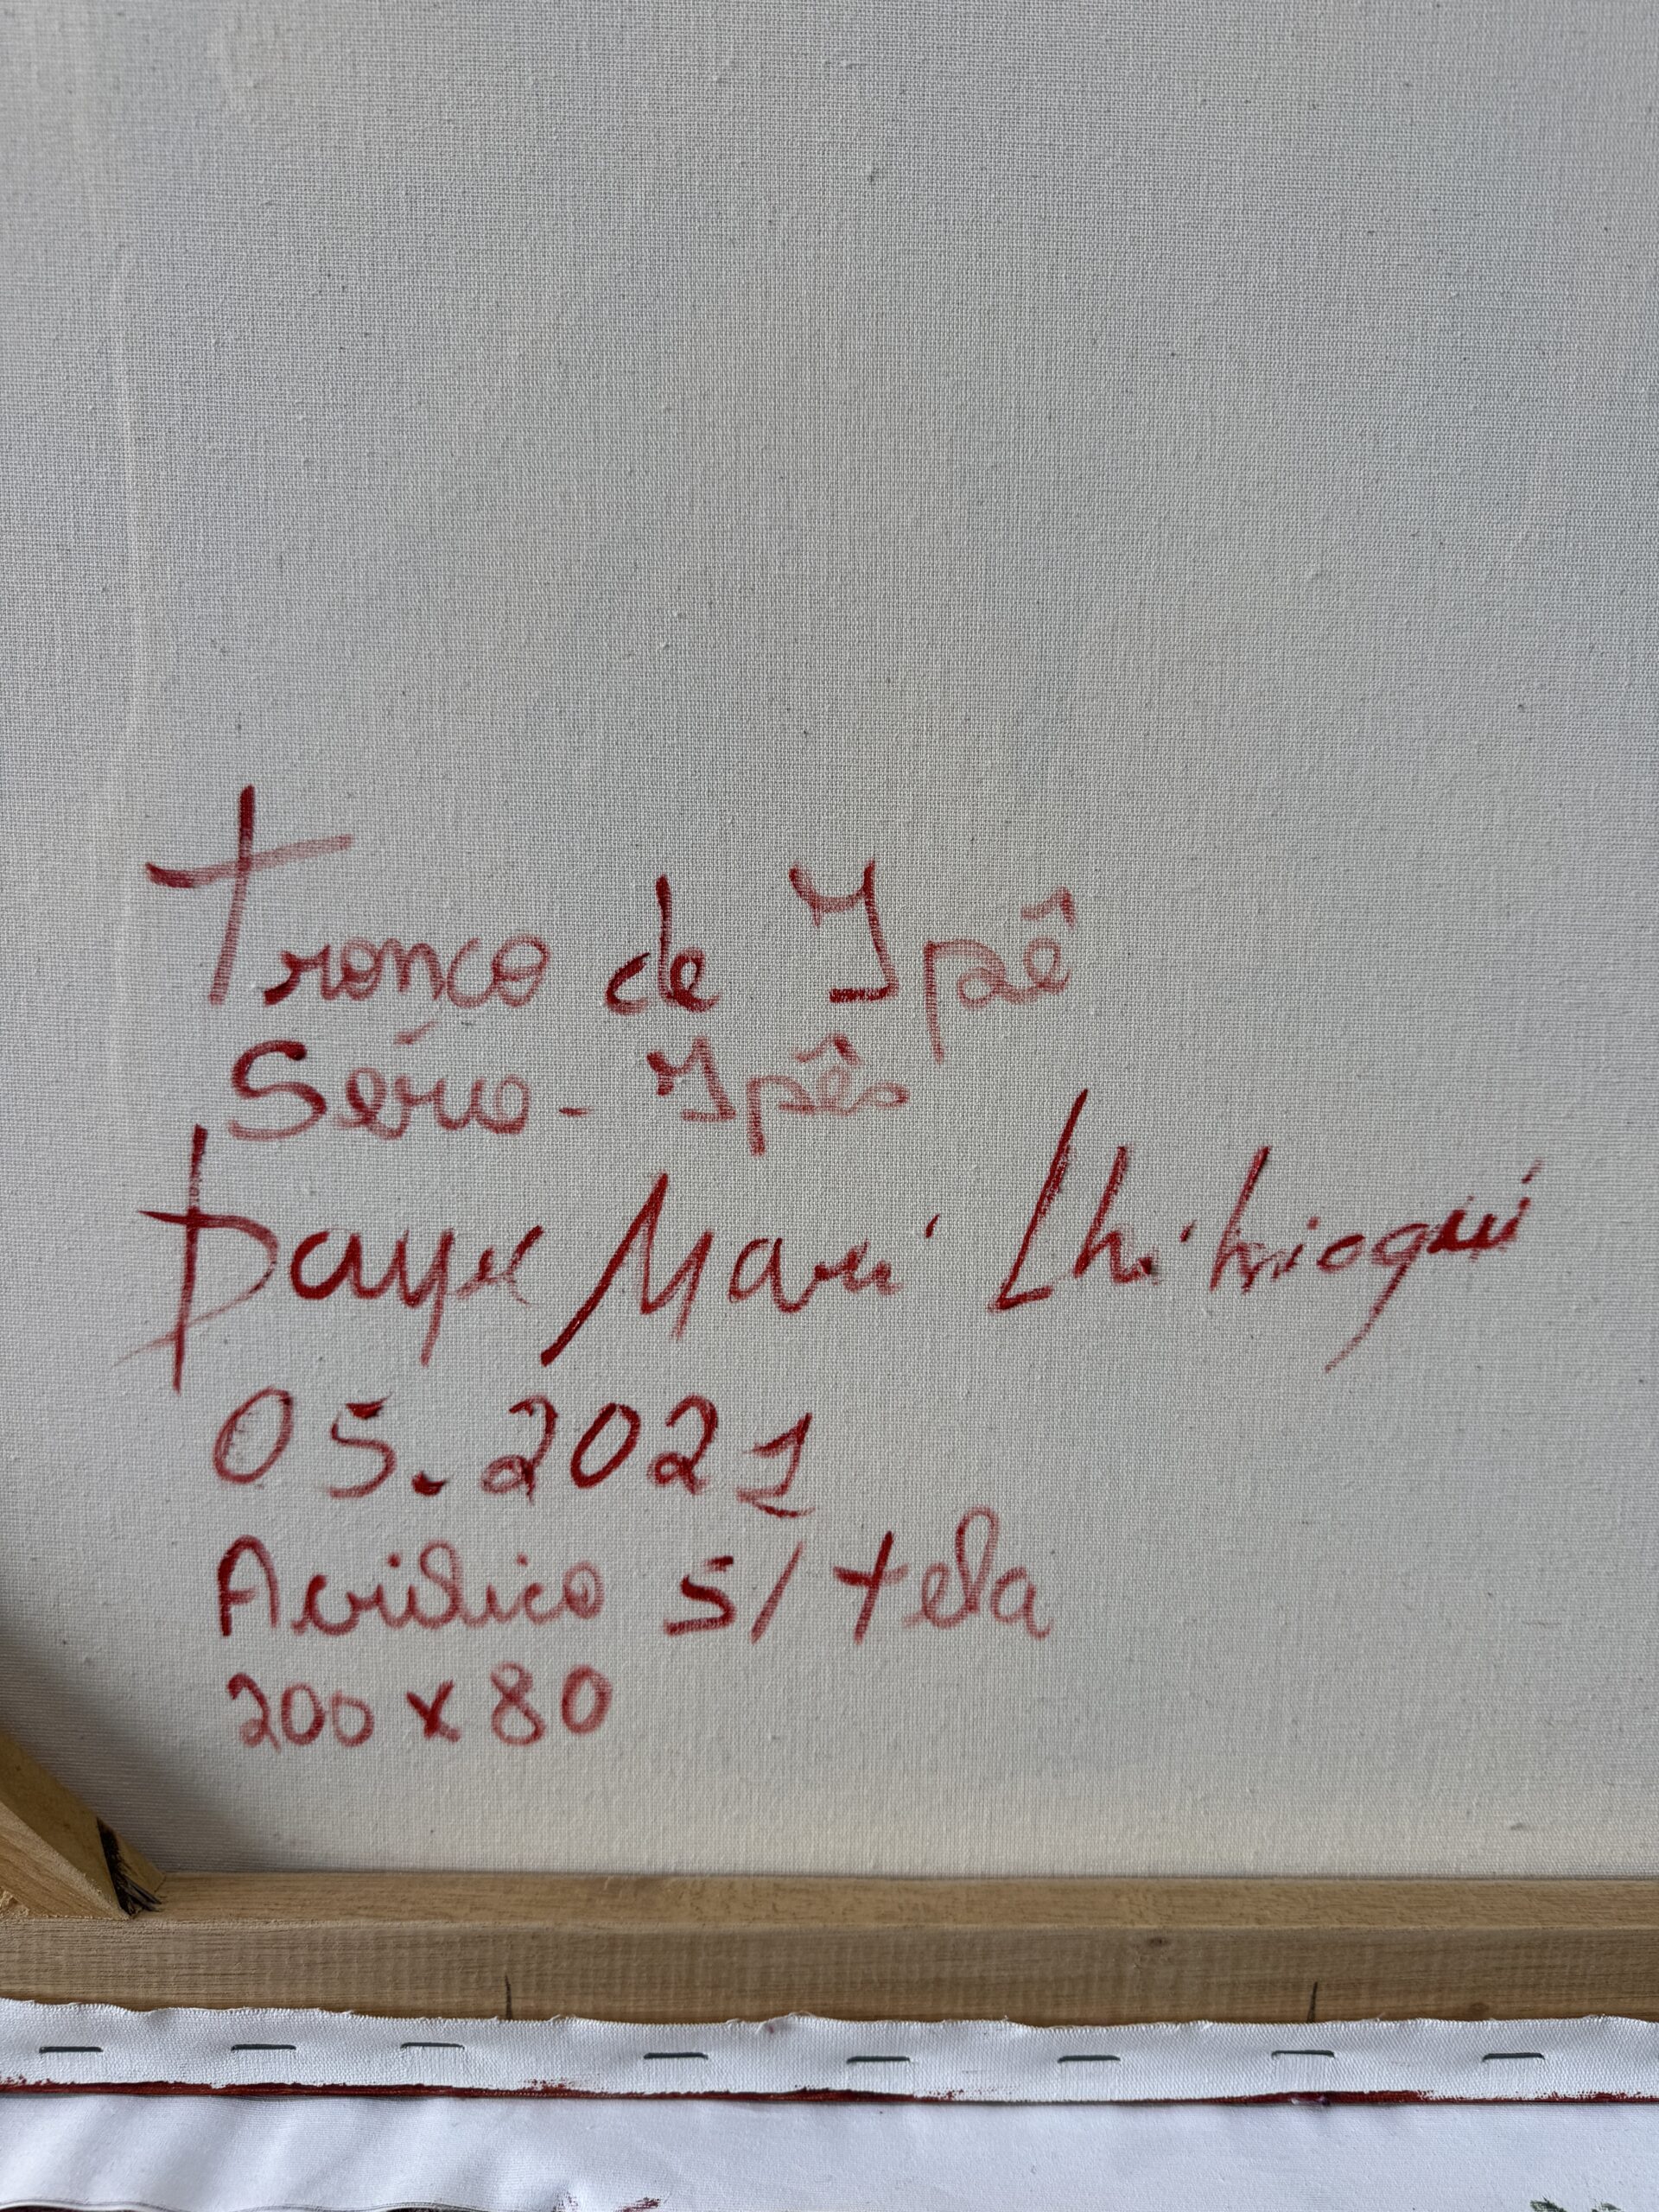 Tronco de Ipê
Série - Ipês
Mari
05.2021
Acrílico s/ tela
200 x 80